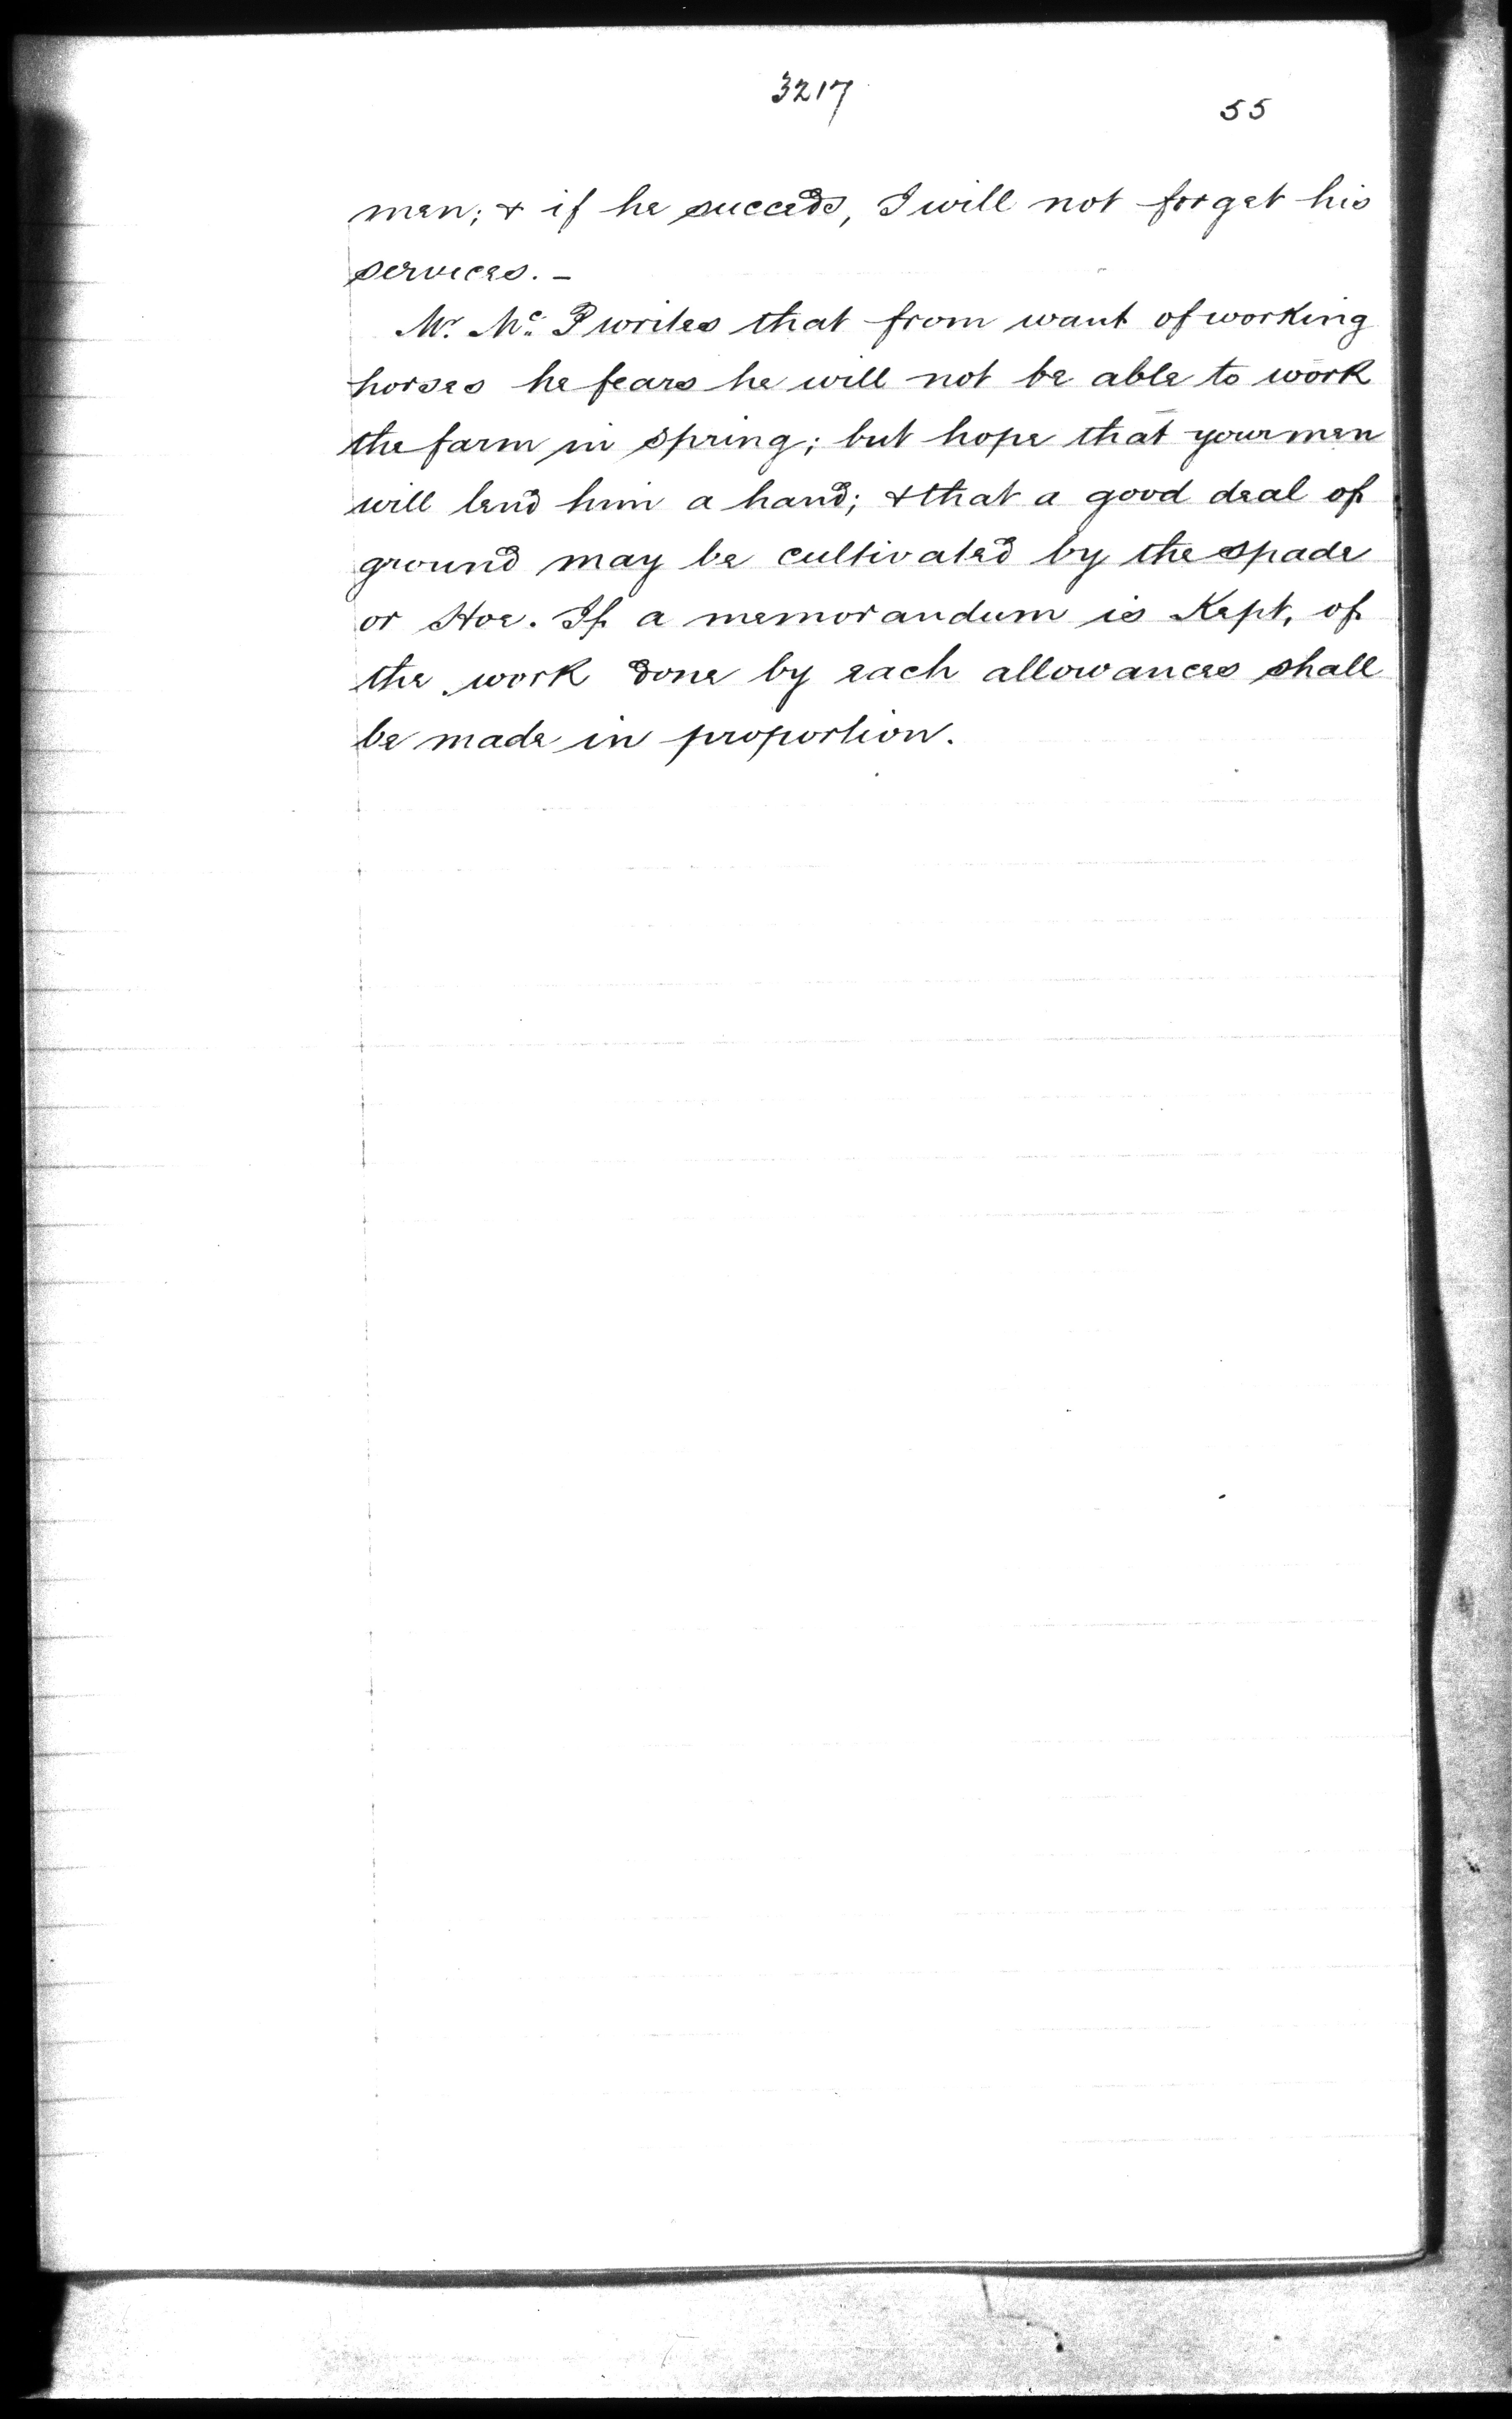 3217
55
men; & if he succeds, I will not forget his
services. —
Mr. Mc. P writes that from want of working
horses he fears he will not be able to work
the farm in spring; but hope that your men
will lend him a hand; & that a good deal of
ground may be cultivated by the spade
or Hoe. If a memorandum is Kept, of
the work done by each allowances shall
be made in proportion.